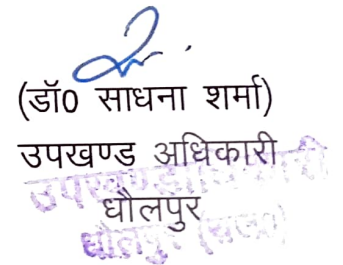 (डॉ0 साधना शर्मा)
उपखण्ड अधिकारी
उपखण्ड अधिकारी
धौलपुर
धौलपुर (राज०)